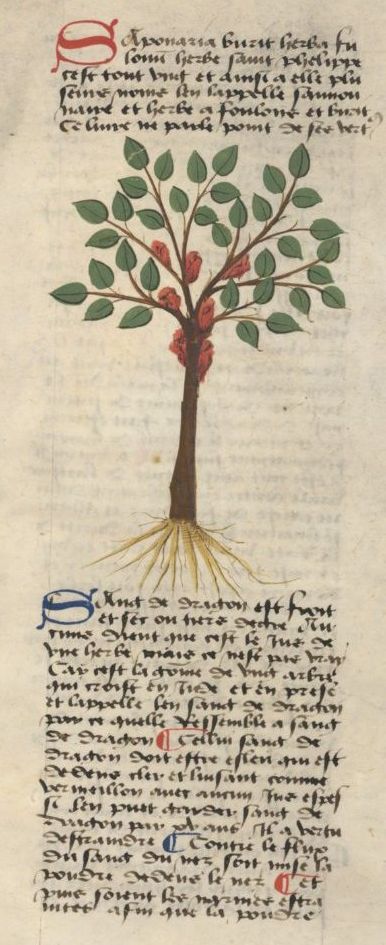 Saponaria burit herba fu
lonum herbe saint phelippe
cest tout vng et ainsi a elle plu
seurs noms len lappelle sauon
naire et herbe a foulons et burit
Ce liure ne parle point de ses vert
Sang de dragon est froit
et sec ou tiers degre Au
cuns dient que cest le Jus de
vne herbe mais ce nest pas vray
Car cest la gome de vng arbre
qui croist en Jnde et en perse
et lappelle len sang de dragon
pour ce quelle Ressemble a sang
de dragon ¶ Cellui sang de
dragon doit estre esleu qui est
dedens cler et luisant comme
vermeillon auec aucun Jus espes
si len puet garder sang de
dragon par xv ans Il a vertu
destraindre ¶ Contre le flux
du sang du nez soit mise la
poudre dedens le nez ¶ Et
puis soient les narines estra
intes afin que la poudre